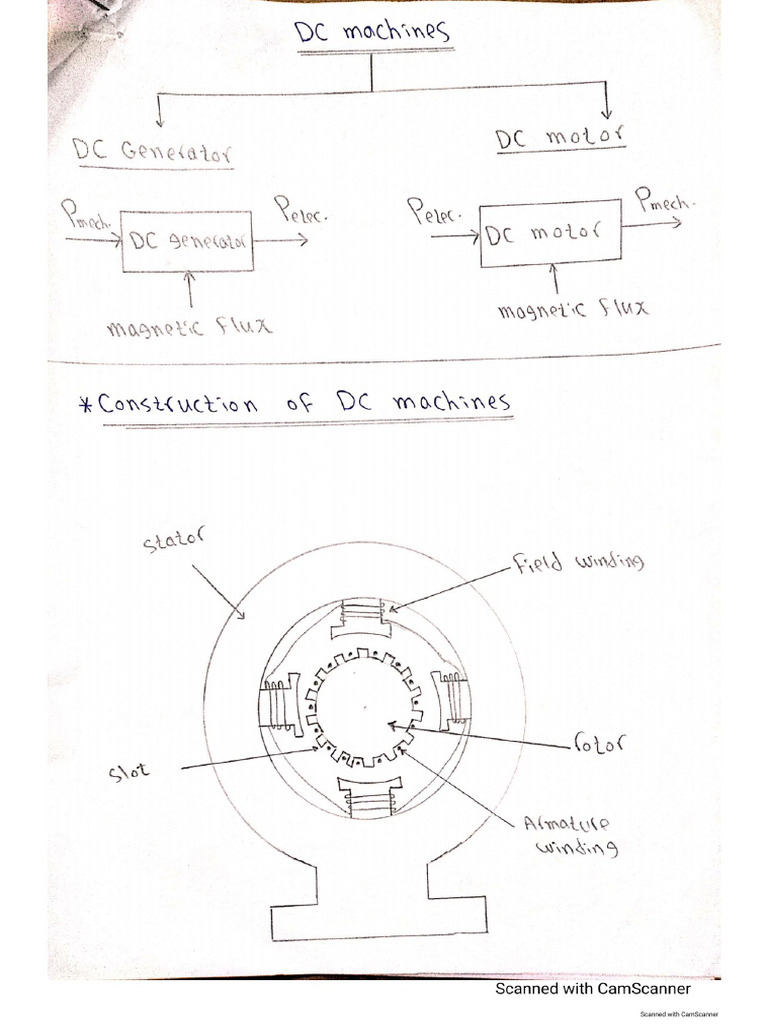 DC machines
DC Generator
DC motor
Pmech.
DC generator
Pelec.
magnetic flux
Pelec.
DC motor
Pmech.
magnetic flux
*Construction of DC machines
stator
field winding
rotor
slot
Armature
winding
Scanned with CamScanner
Scanned with CamScanner